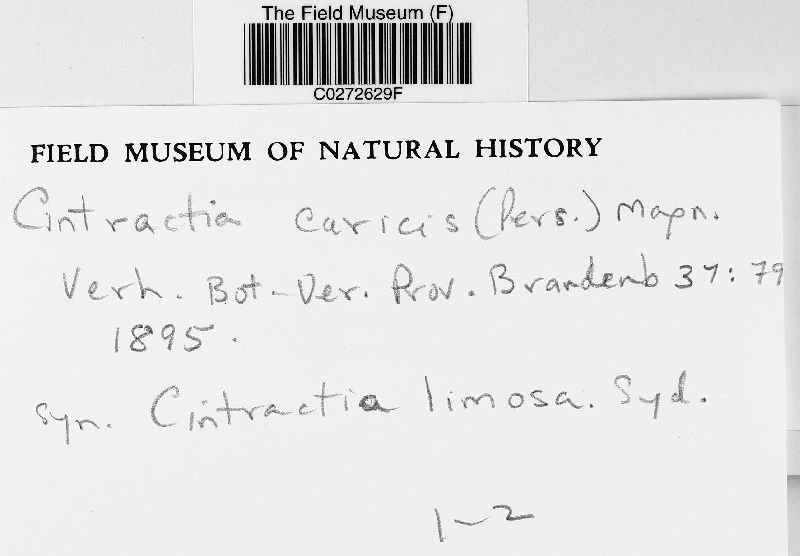 The Field Museum (F)
C0272629F
FIELD MUSEUM OF NATURAL HISTORY
Cintractia caricis (Pers.) Magn.
Verh. Bot-Ver. Prov. Brandenb 37: 79
1895.
syn. Cintractia limosa. Syd.
1-2